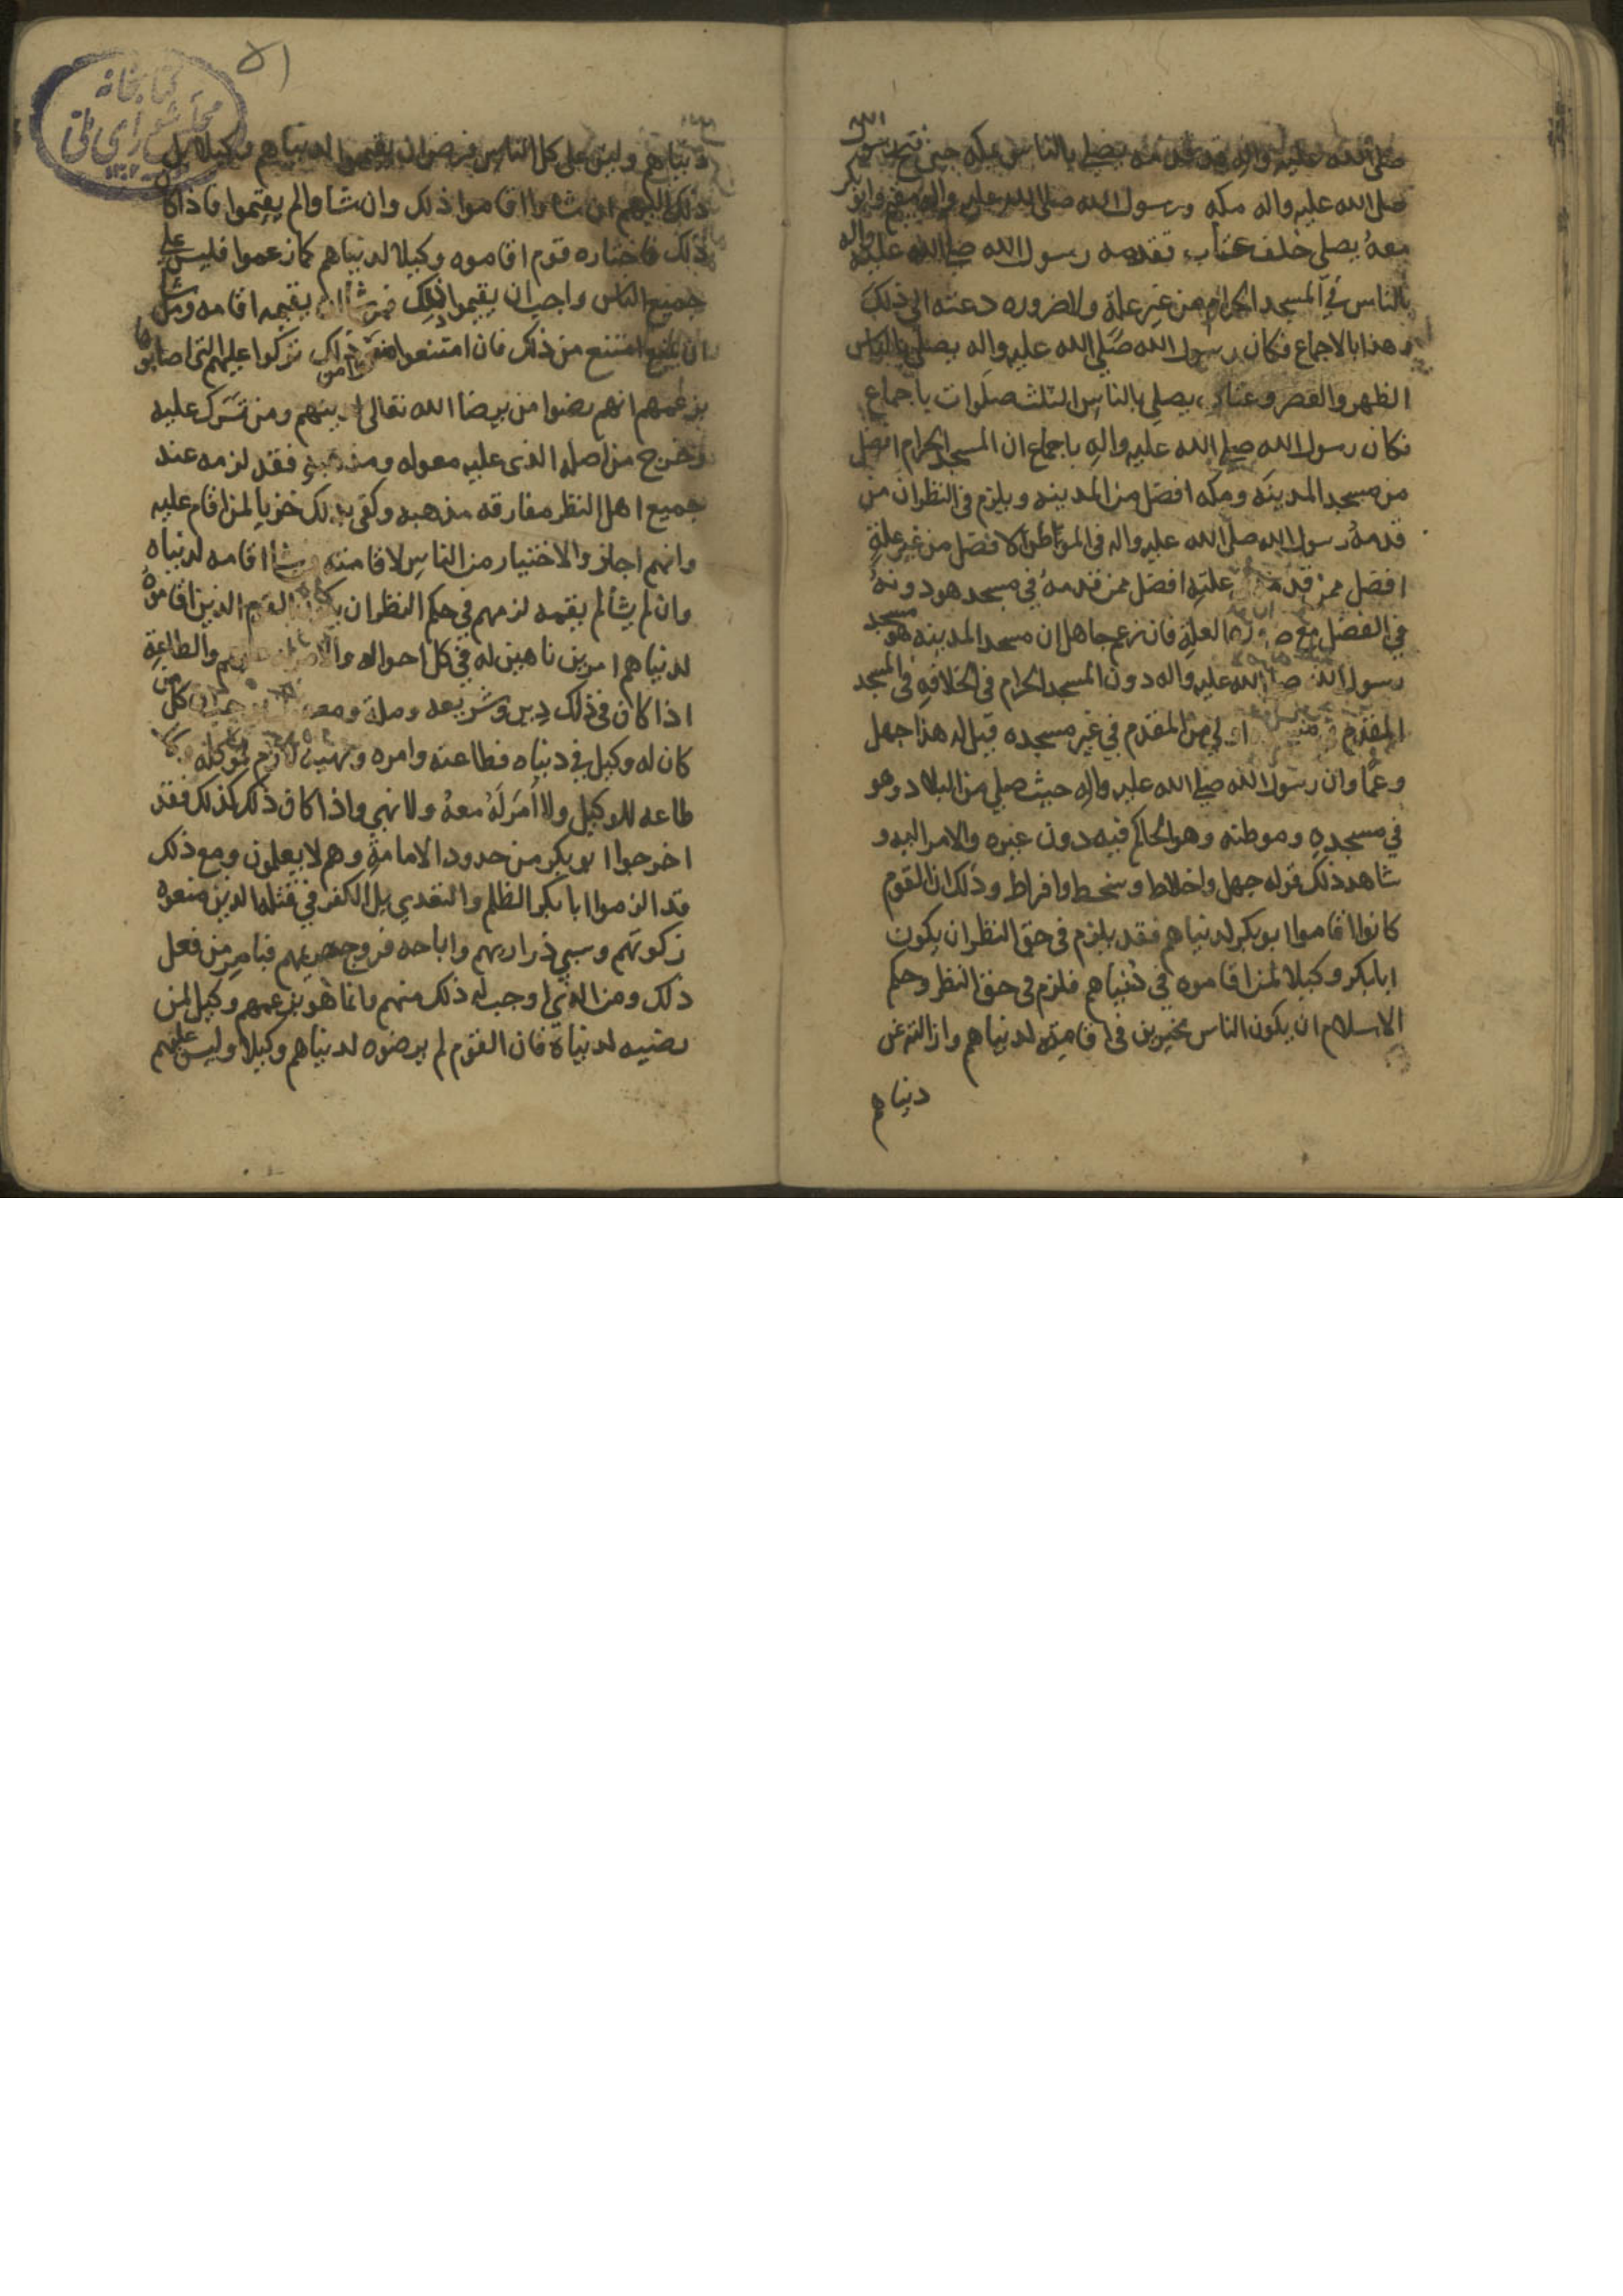 صلى الله عليه واله قد قدمه يصلى بالناس بمكه حين فتح رسول الله
صلى الله عليه واله مكه ورسول الله صلى الله عليه واله مقيم وابو بكر
معه يصلى خلف عتاب تقدمه رسول الله صلى الله عليه واله
بالناس في المسجد الحرام من غير علة ولا ضروره دعته الى ذلك
وهذا بالاجماع فكان رسول الله صلى الله عليه واله يصلى بالناس
الظهر والعصر وعتاب يصلى بالناس الثلث صلوات باجماع
فكان رسول الله صلى الله عليه واله باجماع ان المسجد الحرام افضل
من مسجد المدينه ومكه افضل من المدينه ويلزم في النظر ان من
قدمه رسول الله صلى الله عليه واله في الموطن الافضل من غير علة
افضل ممن قدمه علته افضل ممن قدمه في مسجد هو دونه
في الفضل مع ضرورة العلة فان زعم جاهل ان مسجد المدينه هو مسجد
رسول الله صلى الله عليه واله دون المسجد الحرام في الخلافه في المسجد
المقدم اولى من المقدم في غير مسجده قيل له هذا جهل
وعما وان رسول الله صلى الله عليه واله حيث صلى من البلاد وهو
في مسجده وموطنه وهو الحاكم فيه دون غيره والامر اليه و
شاهد ذلك قوله جهل واخلاط وسخط وافراط وذلك ان القوم
كانوا اقاموا ابو بكر لدنياهم فقد يلزم في حق النظر ان يكون
ابابكر وكيلا لمن اقاموه في دنياهم فلزم في حق النظر وحكم
الاسلام ان يكون الناس مخيرين في اقامته لدنياهم وازالته عن
دنياهم
دنياهم وليس على كل الناس فرض ان يقيموا لدنياهم وكيلا بل
ذلك اليهم ان شاءوا اقاموا ذلك وان شاوا لم يقيموا فاذا كان
ذلك فاختاره قوم اقاموه وكيلا لدنياهم كما زعموا فليس على
جميع الناس واجب ان يقيموا ذلك فمن شا ان يقيمه اقامه ومن شا
ان يمتنع امتنع من ذلك فان امتنعوا من ذلك تركوا عليهم التي اصابوها
بزعمهم انهم رضوا من يرضا الله تعالى لدينهم ومن ترك عليه
وخرج من اصله الذى عليه معوله ومذهبه فقد لزمه عند
جميع اهل النظر مفارقه مذهبه وكفى بذلك خزيا لمن اقام عليه
وانهم اجازوا الاختيار من الناس لاقامته من شا اقامه لدنياه
وان لم يشا لم يقمه لزمهم في حكم النظر ان يكون القوم الذين اقاموه
لدنياهم امرين ناهين له في كل احواله والطاعة
اذا كان في ذلك دين وشريعه وملة كل من
كان له وكيل في دنياه فطاعته وامره ونهيه لازم لموكله
طاعه للوكيل ولا امر له معه ولا نهي واذا كان ذلك كذلك فقد
اخرجوا ابو بكر من حدود الامامة وهم لا يعلمون ومع ذلك
قد الزموا ابا بكر الظلم والتعدى بل الكفر في قتله الذين منعوه
زكوتهم وسبي ذراريهم واباحه فروج حريمهم فبامر من فعل
ذلك ومن الذى اوجب له ذلك منهم فانما هو بزعمهم وكيل لمن
رضيه لدنياه فان القوم لم يرضوه لدنياهم وكيلا وليس عليهم
كتابخانه
مجلس شورای ملی
۱۳۰۲